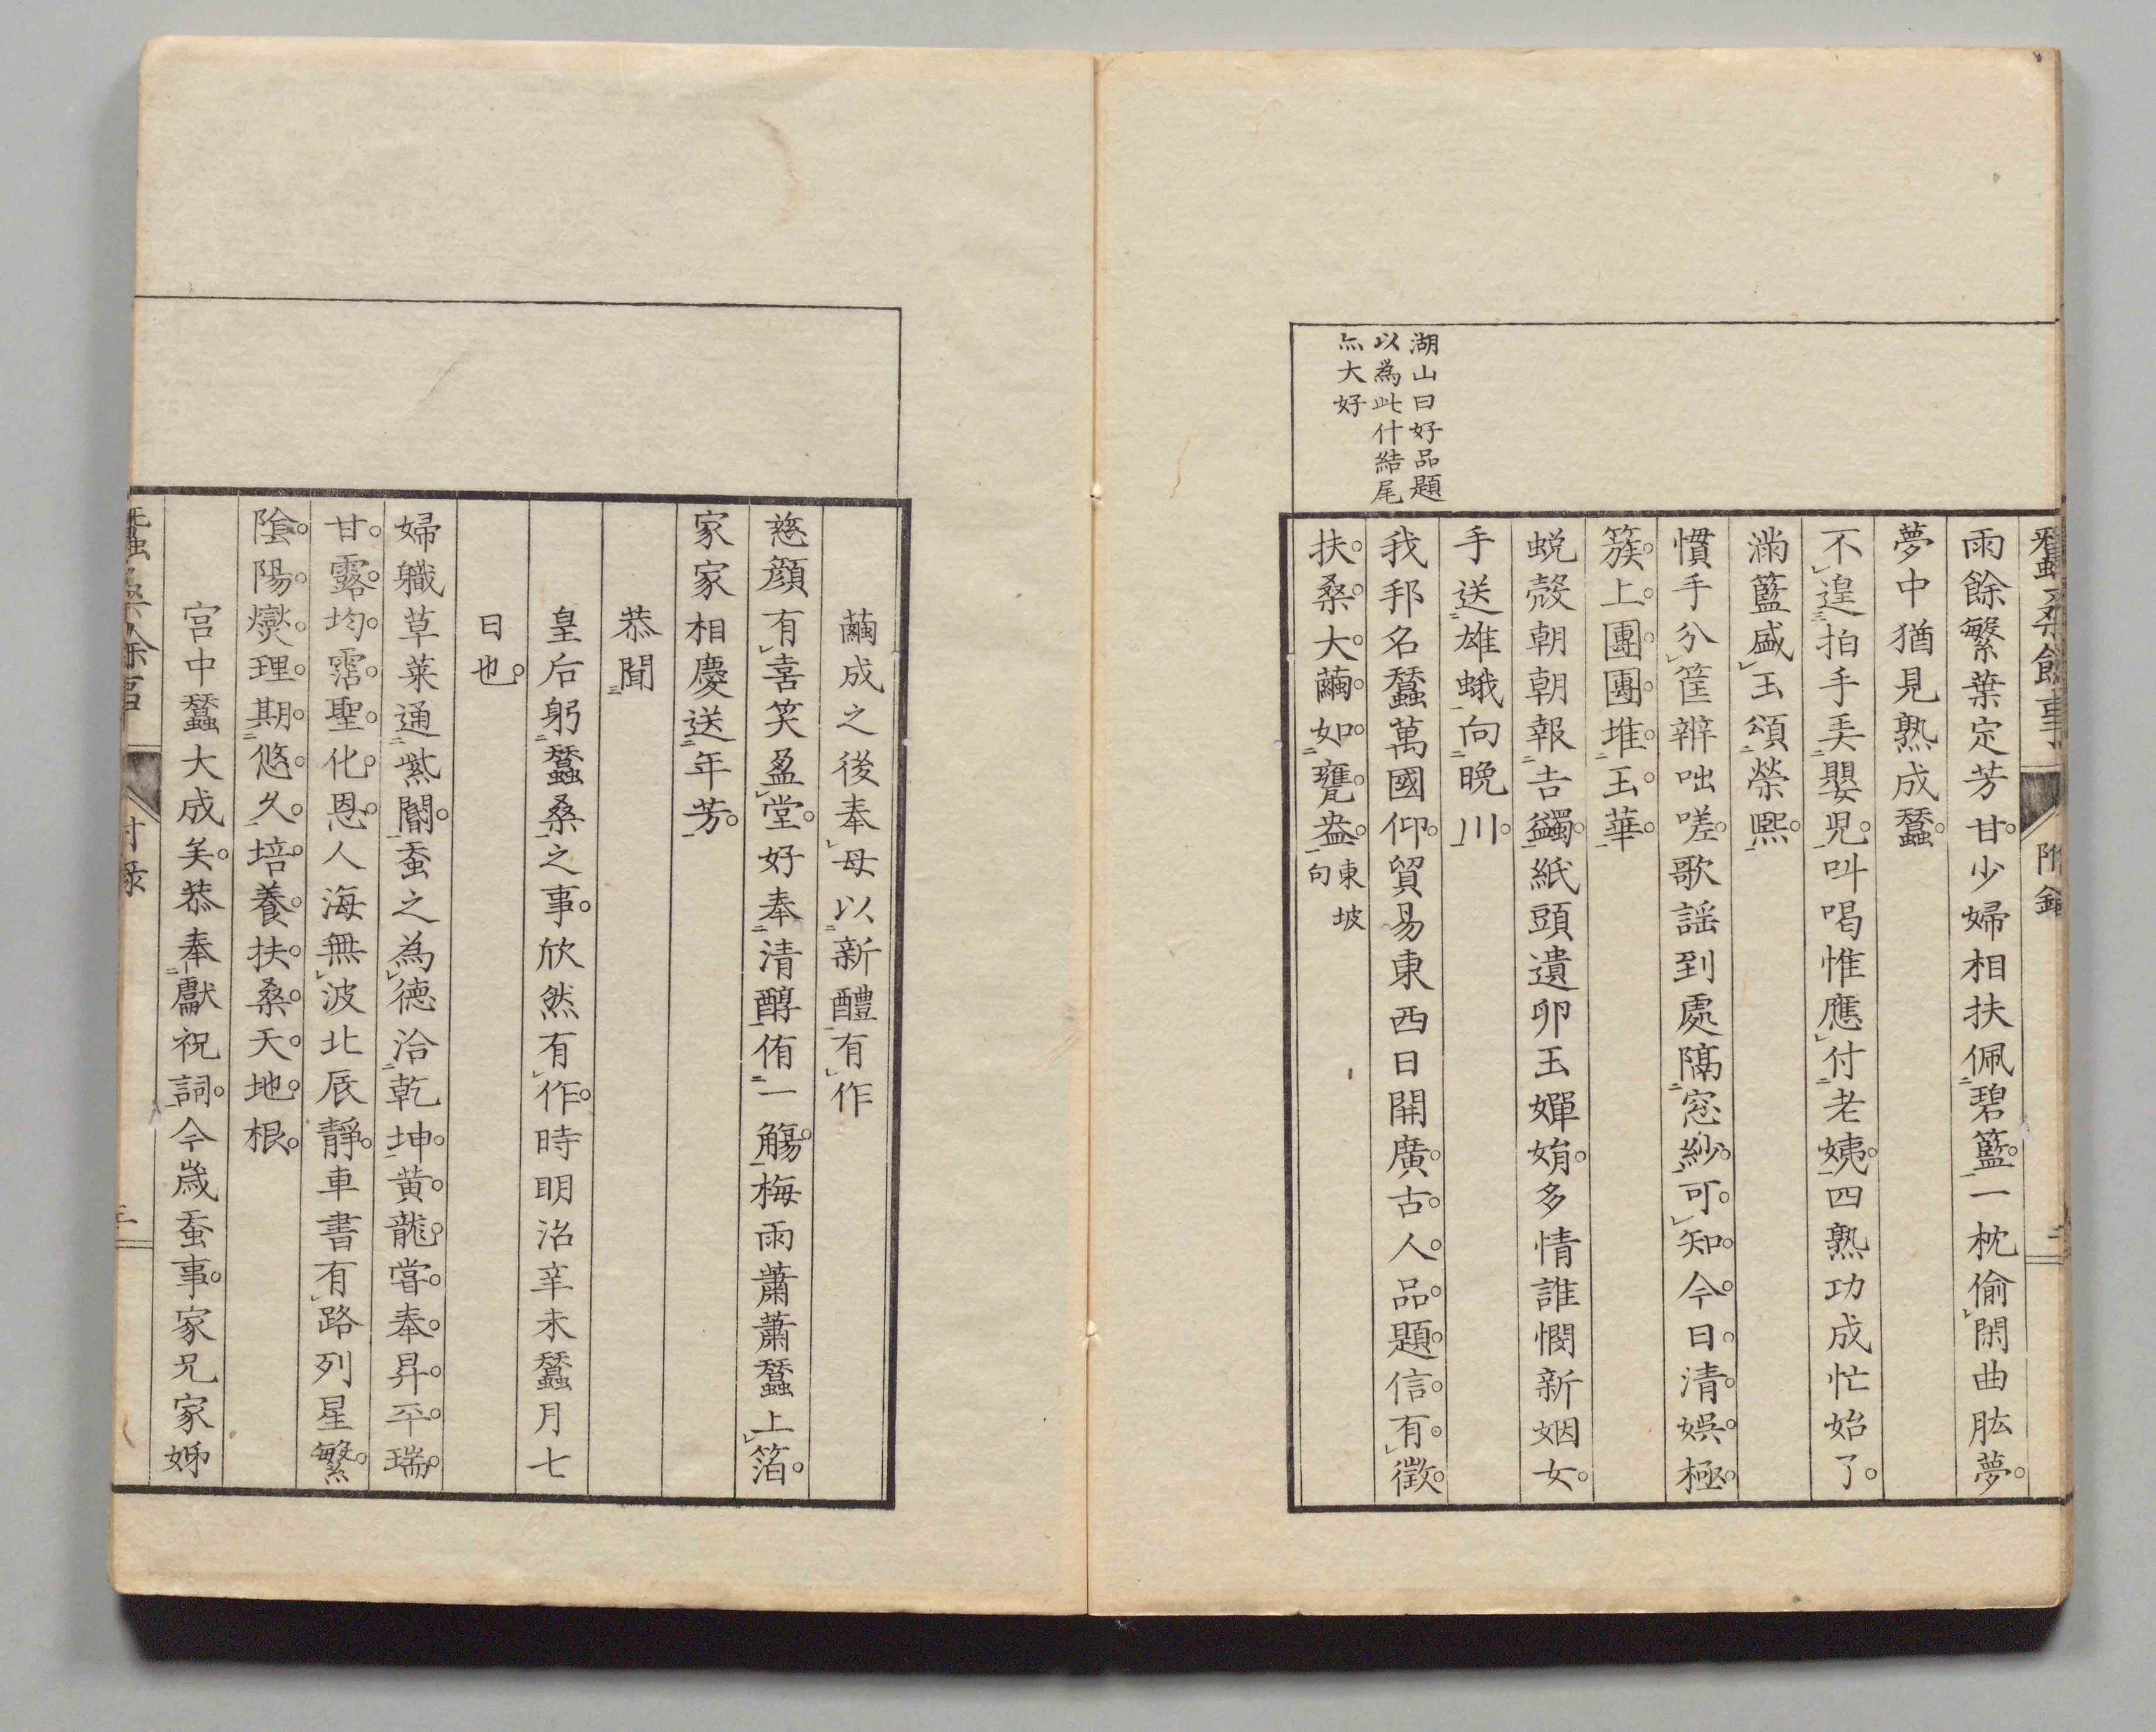 蠶桑餘事 附錄 二
湖山曰好品題
以為此什結尾
亦大好
雨餘繁葉定芳甘。少婦相扶佩㆓碧籃㆒。一枕偷㆑閑曲肱夢。
夢中猶見熟成蠶。
不㆑遑㆔拍手弄㆓嬰兒㆒。叫喝惟應㆑付㆓老姨㆒。四熟功成忙始了。
滿籃盛㆑玉頌㆓榮熙㆒。
慣手分㆑筐辨咄嗟。歌謡到處隔㆓窓紗㆒。可㆑知今日清娯極。
簇上團團堆㆓玉華㆒。
蛻殼朝朝報㆓吉蠲㆒。紙頭遺卵玉嬋娟。多情誰憫新姻女。
手送㆓雄蛾㆒向㆓晩川㆒。
我邦名蠶萬國仰。貿易東西日開廣。古人品題信有㆑徵。
扶桑大繭如㆓甕盎㆒。東坡句
繭成之後奉㆑母以㆓新醴㆒有㆑作
慈顔有㆑喜笑盈㆑堂。好奉㆓清醇㆒侑㆓一觴㆒。梅雨蕭蕭蠶上㆑箔。
家家相慶送㆓年芳㆒。
恭聞㆘
皇后躬㆓蠶桑㆒之事。欣然有㆑作。時明治辛未蠶月七
日也。
婦職草菜通㆓紫閽㆒。蚕之為㆑德洽㆓乾坤㆒。黄龍嘗奉昇平瑞。
甘露均霑聖化恩。人海無㆑波北辰靜。車書有㆑路列星繁。
陰陽爕理期㆓悠久㆒。培養扶桑天地根。
宮中蠶大成矣。恭奉㆓獻祝詞㆒。今歳蚕事。家兄家姊
蠶桑餘事 附錄 三